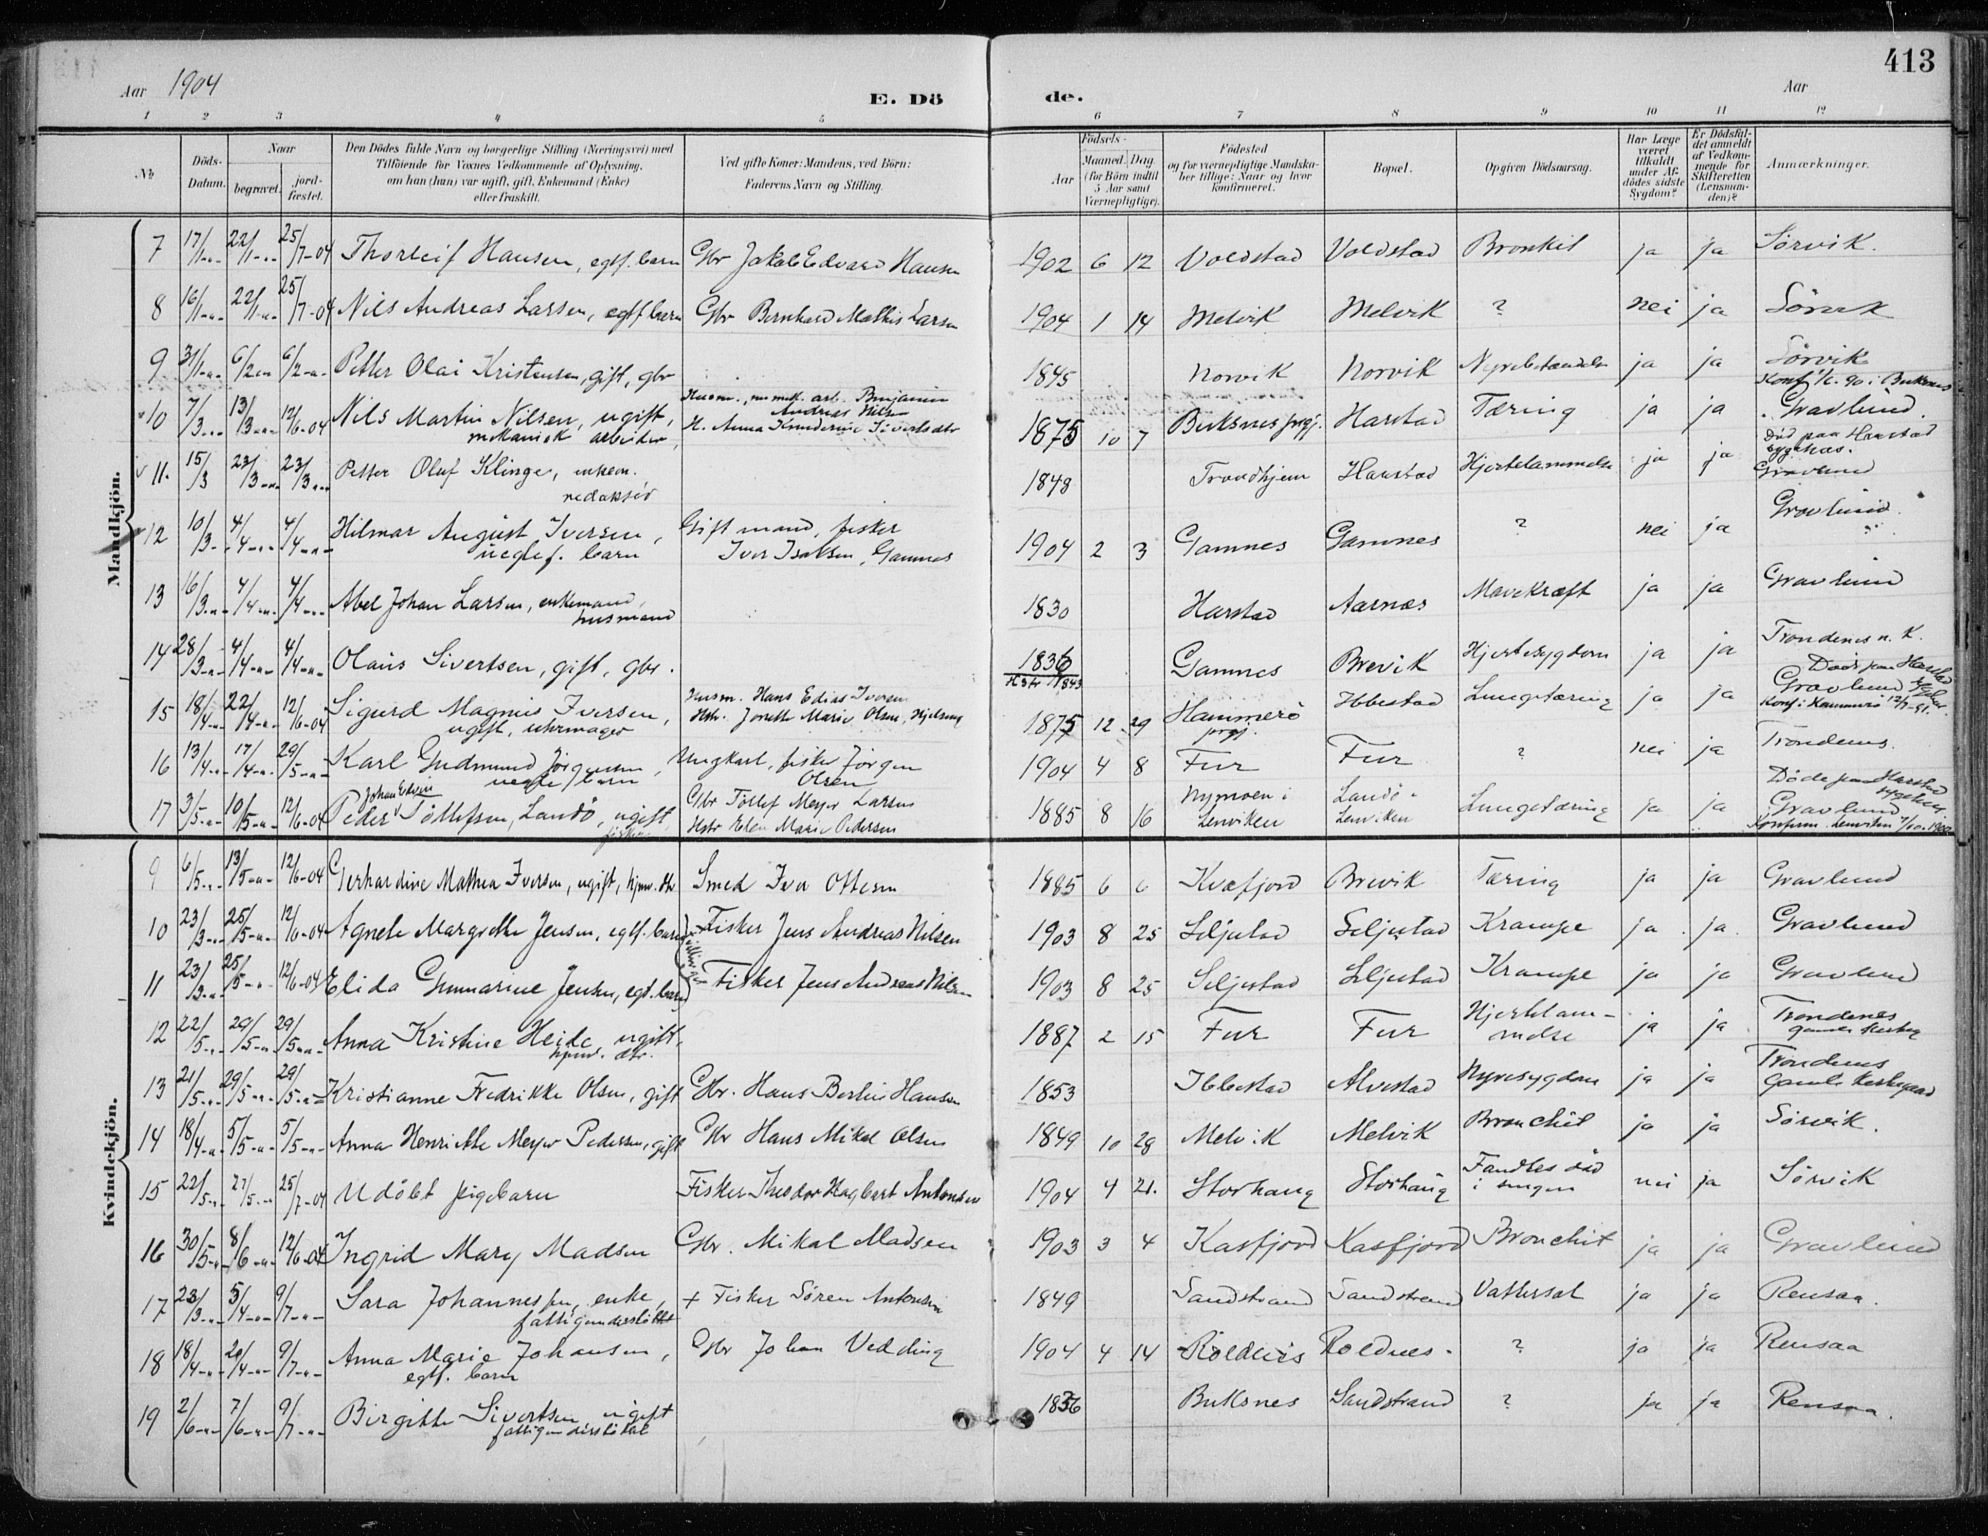 413
Aar 1904
E. Dö de.
Aar
1 2 3 4 5 6 7 8 9 10 11 12
No
Döds-Datum.
Naar
begravet.
jord-fæstet.
Den Dödes fulde Navn og borgerlige Stilling (Næringsvei) med
Tilföiende for Voxnes Vedkommende af Oplysning,
om han (hun) var ugift, gift, Enkemand (Enke)
eller fraskilt.
Ved gifte Koner: Mandens, ved Börn:
Faderens Navn og Stilling.
Födsels-
Aar
Maaned. Dag
(for Börn indtil
5 Aar samt
Værnepligtige).
Födested
og for værnepligtige Mandska-
ber tillige: Naar og hvor
konfirmeret.
Bopæl.
Opgiven Dödsaarsag.
Har Læge
været
tilkaldt
under Af-
dödes sidste
Sygdom?
Er Dödsfal-
det anmeldt
af Vedkom-
mende for
Skifteretten
(Lensman-
den)?
Anmærkninger.
Mandkjön.
7 17/1 22/1 25/7-04 Thorleif Hansen, egtf. barn Gbr Jakob Edvard Hansen 1902 6 12 Voldstad Voldstad Bronkit ja ja Sørvik.
8 16/1 22/1 25/7-04 Nils Andreas Larsen, egtf barn Gbr Bernhard Mathis Larsen 1904 1 14 Melvik Melvik ? nei ja Sørvik
9 31/1 6/2 6/2 Petter Olai Kristensen, gift, gbr 1845 Norvik Norvik Nyrebetændelse ja ja Sørvik
10 7/3 13/3 12/6-04 Nils Martin Nilsen, ugift, mekanisk arbeider, Husm., Benjamin Andreas Nilsen H. Anna 1875 10 7 Buksnes prgj. Harstad Tæring ja ja Konf. 90 i Buksnes Gravlund.
11. 15/3 23/3 23/3 Petter Oluf Klinge, enkem. redaktør 1848 Trondhjem Harstad Hjertelammelse ja ja Død paa Harstad sygehus. Gravlund
12 10/3 4/4 4/4 Hilmar August Iversen, uegtef. barn Gift mand, fisker Iver Isaksen, Gamnes 1904 2 3 Gamnes Gamnes ? nei ja Gravlund.
13 16/3 4/4 4/4 Abel Johan Larsen, enkemand, husmand 1830 Harstad Aarnes Mavekræft ja ja Gravlund
14 28/3 4/4 4/4 Olaus Sivertsen, gift, gbr. 1836 Gamnes Brevik Hjertesygdom ja ja Trondenes n. K.
15 18/4 22/4 12/6-04 Sigurd Magnus Iversen, ugift, uhrmager Husm. Hans Edias Iversen Hstr. Jonette Marie Olsen, 1875 12 29 Hammerø prgj. Ibbestad Lungetæring ja ja Død paa Harstad sygehus. Gravlund Konf. i Hammerø
16 13/4 17/4 29/5 Karl Gudmund Jørgensen, uegte barn Ungkarl, fisker Jørgen Olsen 1904 4 8 Fur Fur ? nei ja Trondenes.
17 3/5 10/5 12/6-04 Peder Johan Edvin Tøllefsen, Landø, ugift, Gbr Tøllef Meyer Larsen Hstr Elen Marie Pedersen 1885 8 16 Nymoen i Lenviken Landø i Lenviken Lungetæring ja ja Døde paa Harstad sygehus Gravlund Konfirm. Lenviken 1900
Kvindekjön.
9 6/5 13/5 12/6-04 Gerhardine Mathea Iversen, ugift, hjmv. dtr Smed Iver Ottesen 1885 6 6 Kvæfjord Brevik Tæring ja ja Gravlund
10 23/3 25/5 12/6-04 Agnete Margrethe Jensen, egtf. barn Fisker Jens Andreas Nilsen 1903 8 25 Seljestad Seljestad Krampe ja ja Gravlund
11 23/3 25/5 12/6-04 Elida Gunnarine Jensen, egt. barn Fisker Jens Andreas Nilsen 1903 8 25 Seljestad Seljestad Krampe ja ja Gravlund
12 22/5 29/5 29/5 Anna Kristine Heide, ugift, hjmv. dtr. 1887 2 15 Fur Fur Hjertelammelse ja ja Trondenes gamle
13 21/5 29/5 29/5 Kristianne Fredrikke Olsen, gift Gbr. Hans Bertin Hansen 1853 Ibbestad Alvestad Nyresygdom ja ja Trondenes Gamle Kirkegaard
14 18/4 5/5 5/5 Anna Henriette Meyer Pedersen, gift Gbr Hans Mikal Olsen 1849 10 28 Melvik Melvik Bronchit ja ja Sørvik.
15 22/5 27/5 25/7-04 Udøbt pigebarn Fisker Theodor Hagbart Antonsen 1904 4 21. Storhaug Storhaug Fandtes død i sengen nei ja Sørvik
16 30/5 8/6 12/6-04 Ingrid Mary Madsen Gbr. Mikal Madsen 1903 3 4 Kasfjord Kasfjord Bronchit ja ja Gravlund
17 23/3 5/4 9/7 Sara Johannesen, enke, fattigunderstøttet + Fisker Søren Antonsen 1849 Sandstrand Sandstrand Vattersot ja ja Rensaa.
18 18/4 20/4 9/7 Anna Marie Johansen, egtf. barn Gbr Johan Vedding 1904 4 14 Roldnes Roldnes ? ja ja Rensaa
19 2/6 7/6 9/7 Birgitte Sivertsen, ugift fattigunderstøttet 1836 Buksnes Sandstrand ? ja ja Rensaa.